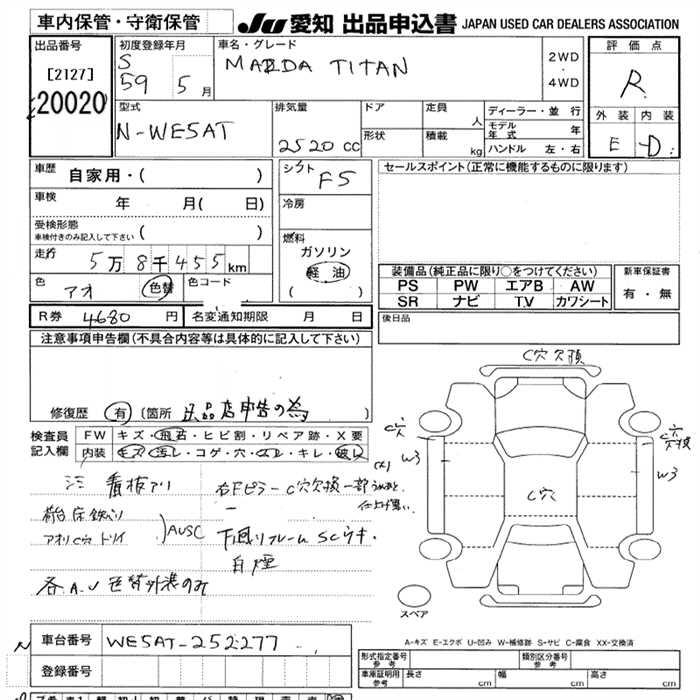 車内保管・守衛保管
JU 愛知 出品申込書 JAPAN USED CAR DEALERS ASSOCIATION
出品番号
[2127]
20020
初度登録年月
S
59 5 月
車名・グレード
MAZDA TITAN
2WD
・
4WD
評価点
R
外装 内装
E D
型式
N-WE5AT
排気量
2520 cc
ドア
形状
定員
人
積載
kg
ディーラー・並行
モデル年式 年
ハンドル 左・右
車歴 自家用・( )
車検 年 月( 日)
受検形態
車検付きのみ記入して下さい ( )
走行 5万8千455km
色 アオ 色替 色コード
シフト F5
冷房
燃料
ガソリン
軽油
( )
セールスポイント(正常に機能するものに限ります)
装備品(純正品に限り○をつけてください)
PS PW エアB AW
SR ナビ T.V カワシート
新車保証書
有・無
R券 4680 円 名変通知期限 月 日
後日品
注意事項申告欄(不具合内容等は具体的に記入して下さい)
修復歴 有 〔箇所 出品店申告の為 〕
検査員
記入欄
FW キズ・飛石・ヒビ割・リペア跡・X要
内装 キズ・汚レ・コゲ・穴・ムレ・キレ・破レ
注 看板アリ
荷台床鉄ハリ
アオリC穴
AUSC
各A.U 色替外装のみ
右Fピラ-C穴欠損一部
下廻りフレームSCサキ・
白煙
C穴欠損
C穴
W3
C穴
C穴
欠損
W3
スペア
A-キズ E-エクボ U-凹み W-補修跡 S-サビ C-腐食 XX-交換済
車台番号 WE5AT-252277
登録番号
形式指定番号
参考
類別区分番号
参考
車庫証明用
参考
長さ cm 幅 cm 高さ cm